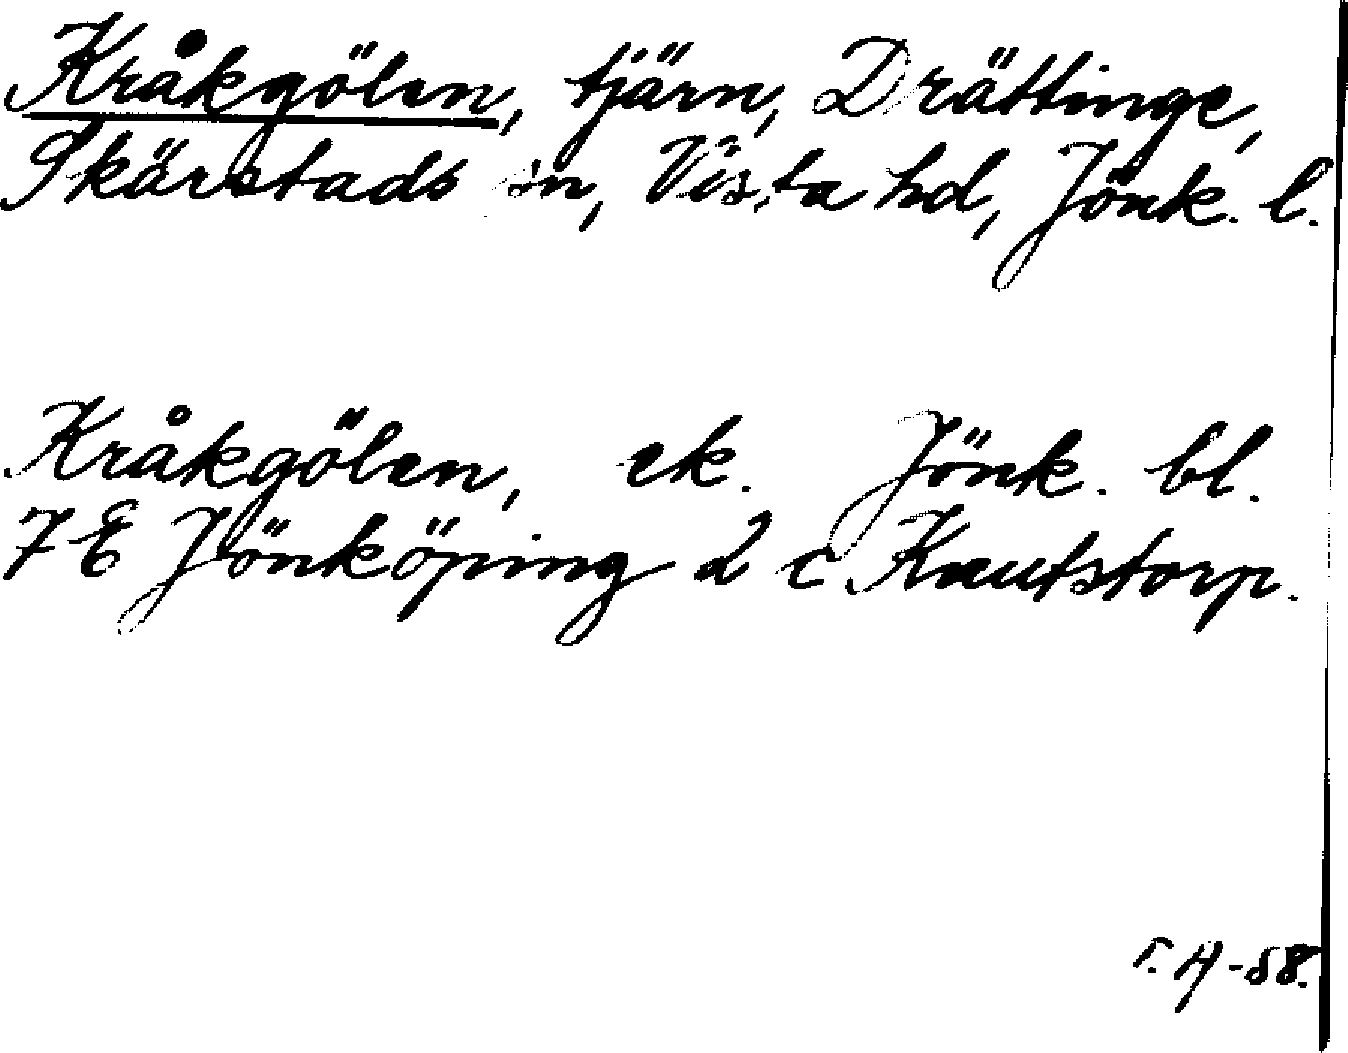 Kråkgölen, tjärn, Drättinge,
Skärstads sn, Vista hd, Jönk. l.
Kråkgölen, ek. Jönk. bl.
7 E Jönköping 2 c Knutstorp.
A -58.